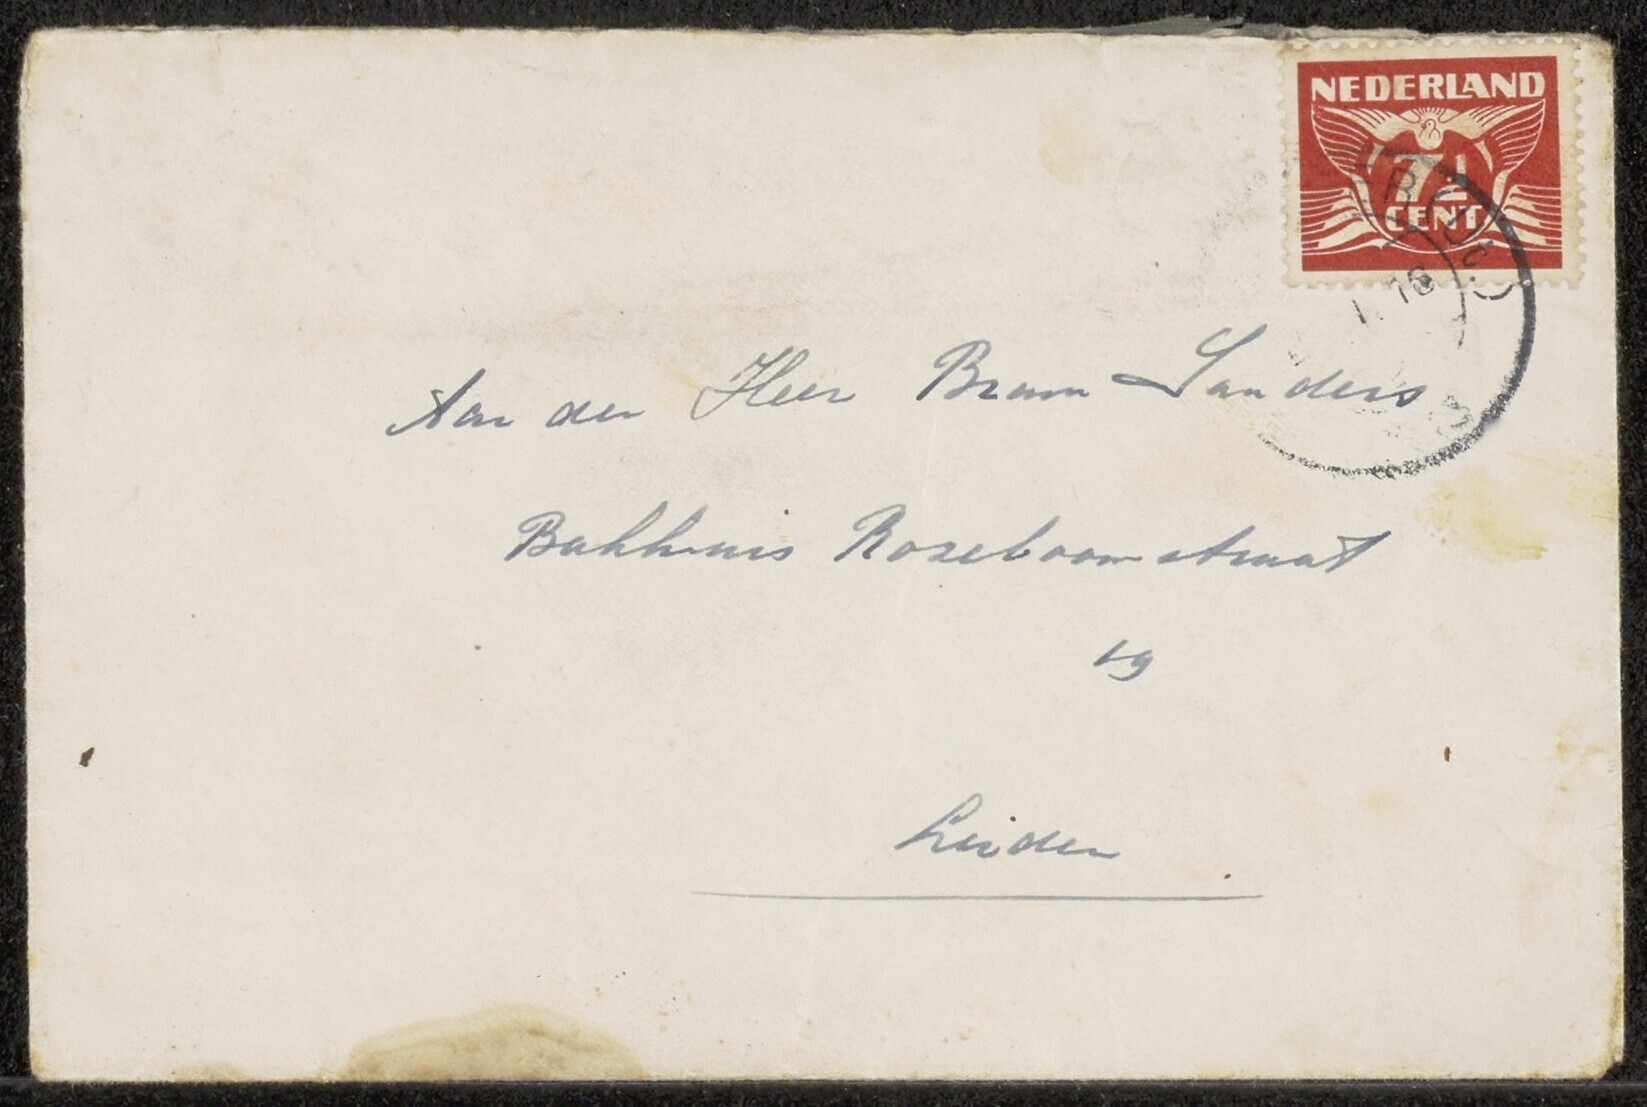 NEDERLAND
7½
CENT
Aan den Heer Bram Sanders
Bakhuis Roozeboomstraat
19
Leiden